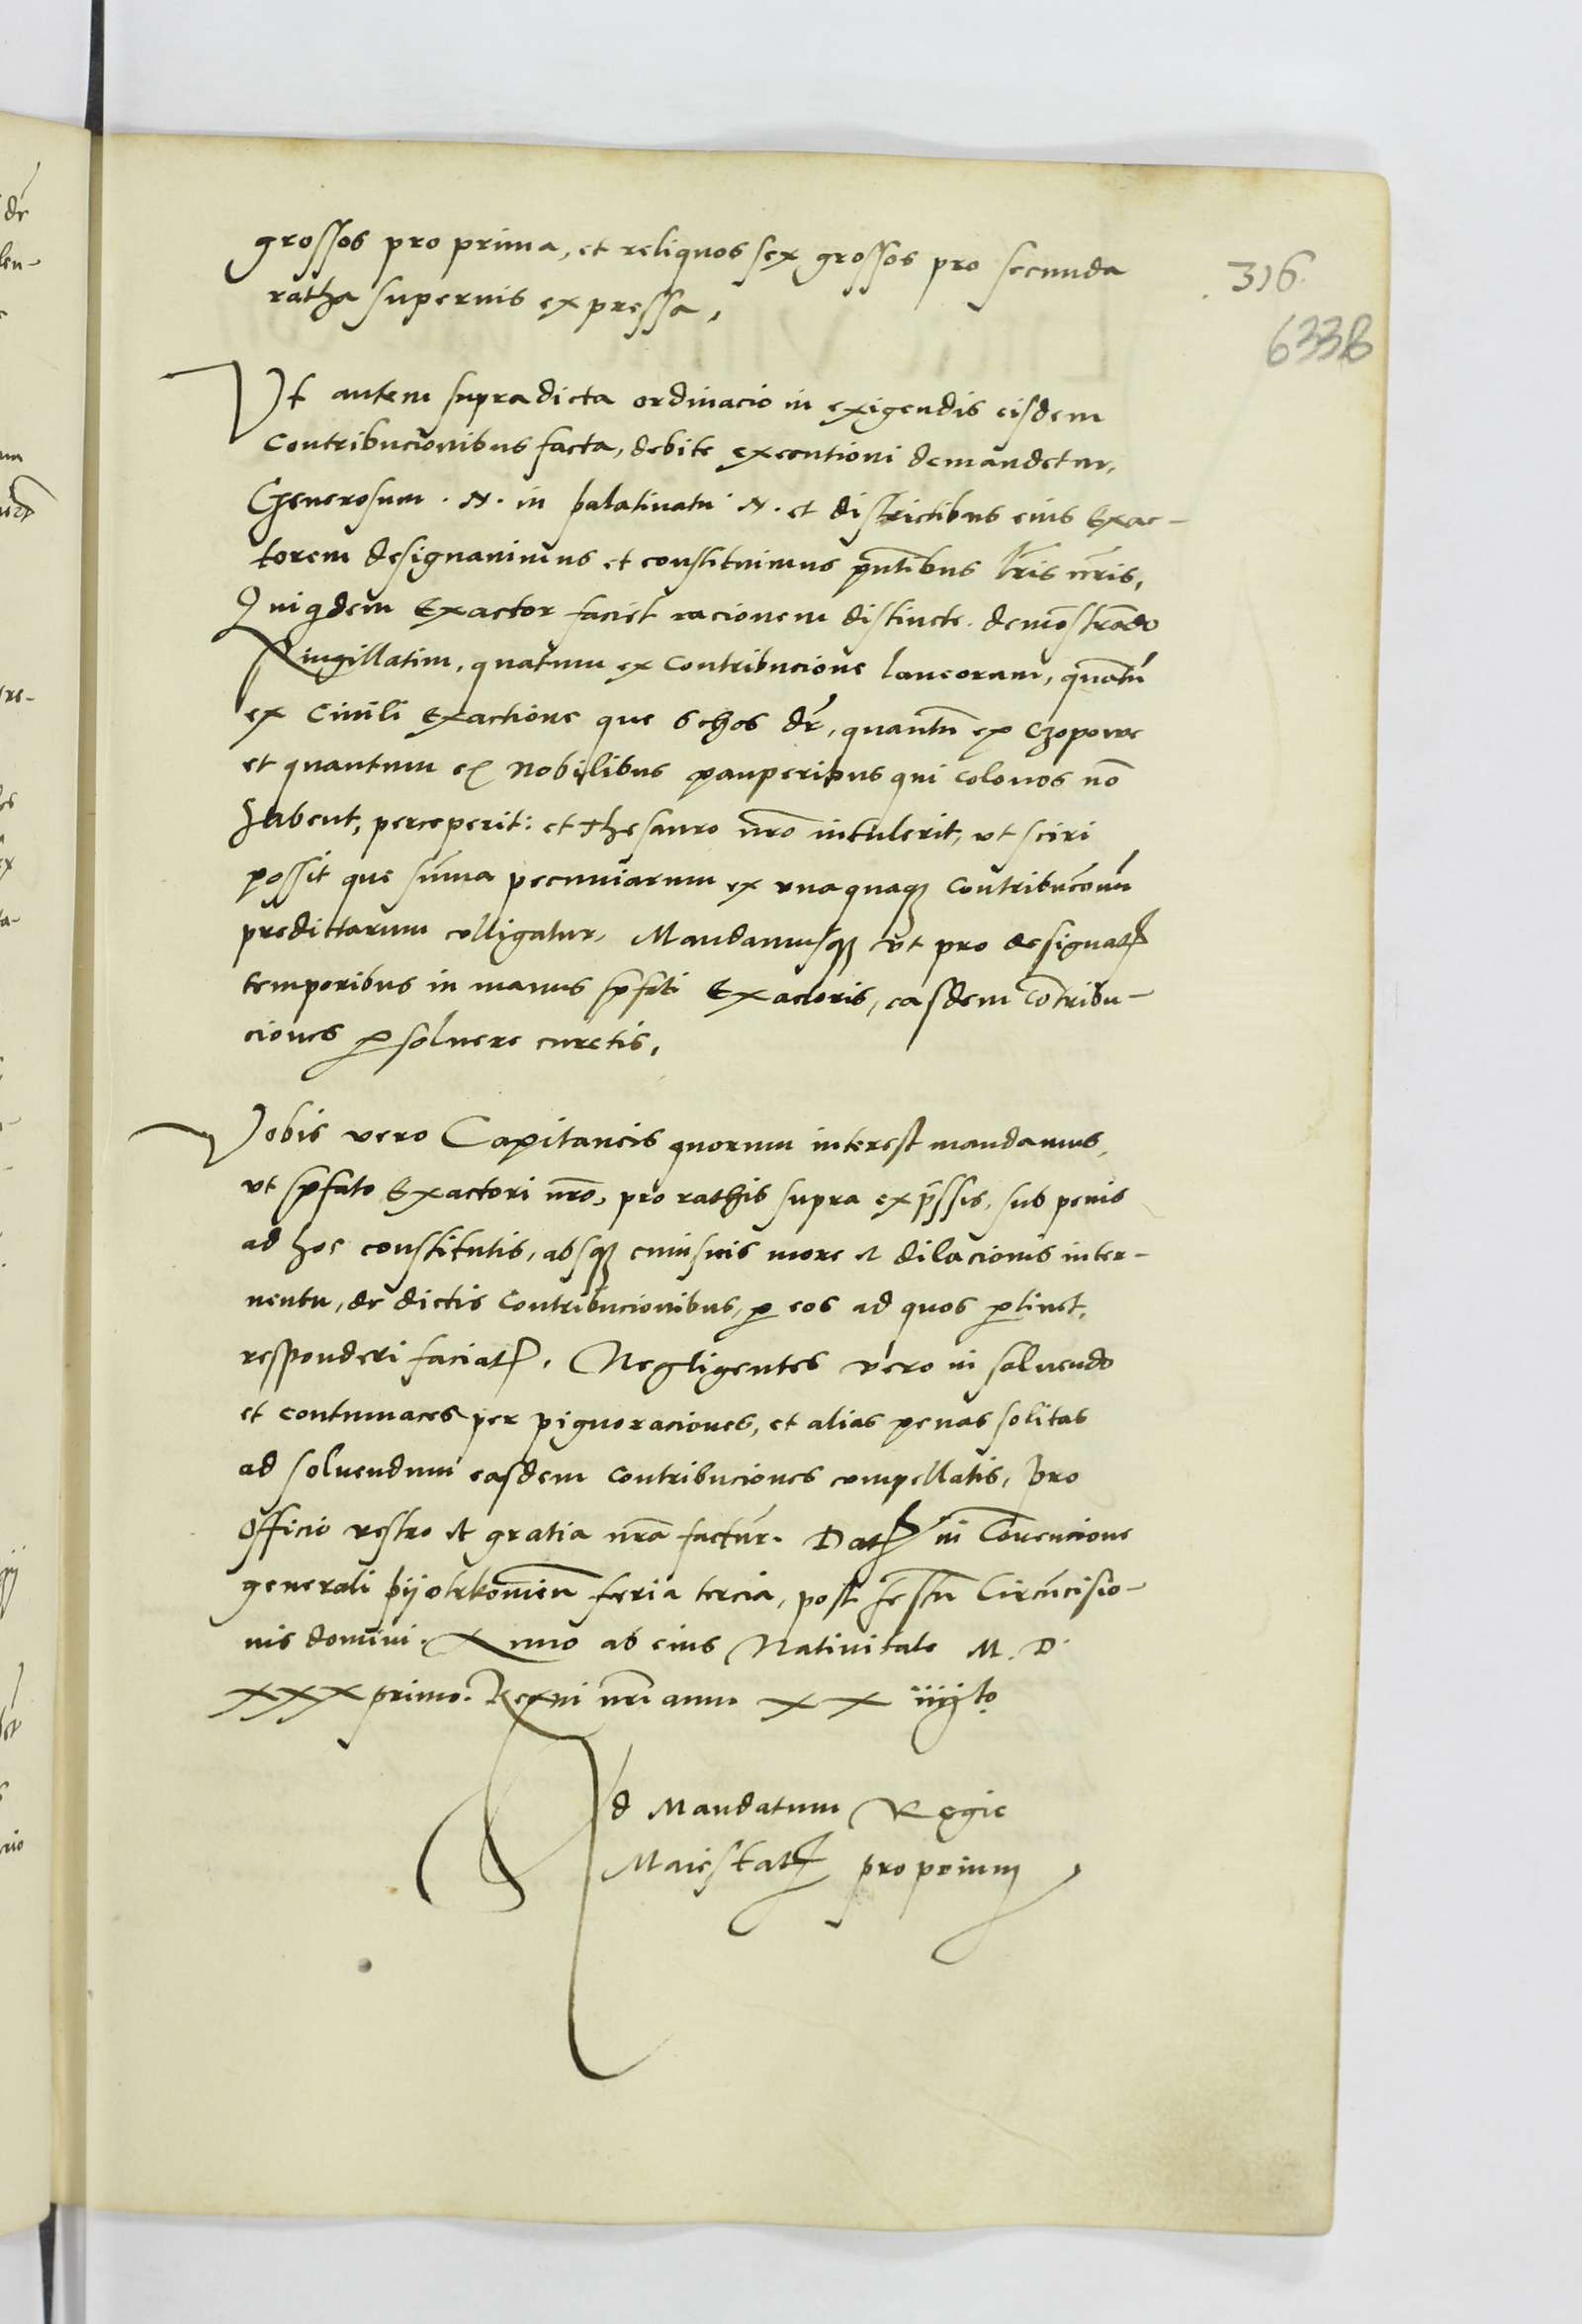 grossos pro prima, et reliquos sex grossos pro secunda
ratha supernis expressa,
.316.
6338
Vt autem supradicta ordinacio in exigendis eisdem
Contribucionibus facta, debite executioni demandetur,
Generosum . N . in palatinatu . N . et districtibus eius Exac-
torem designauimus et constituimus pñtibus lr̃is nr̃is,
Quiqdem Exactor faciet racionem distincte demõstrãdo
Singillatim, quatum ex Contribucione laneorum, quãtũ
ex Ciuili Exactione que Schos dr̃, quantũ ex Czopowe
et quantum ex Nobilibus pauperibus qui colonos nõ
habent, perceperit: et Thesauro nr̃o intulerit, vt sciri
possit que sũma pecuniarum ex vnaquaqȝ Contribuc̃onũ
predictarum colligatur, Mandamusqȝ vt pro designatꝭ
temporibus in manus p̃fati Exactoris, easdem Cõtribu-
ciones ꝑsoluere curetis,
Vobis vero Capitaneis quorum interest mandamus,
vt p̃fato Exactori nr̃o, pro rathis supra exp̃ssis, sub penis
ad hoc constitutis, absqȝ cuiusuis more et dilacionis inter-
uentu, de dictis Contribucionibus, ꝑ eos ad quos ꝑtinet,
responderi faciatꝭ, Negligentes vero in soluendo
et contumaces per pignoraciones, et alias penas solitas
ad soluendum easdem Contribuciones compellatis, pro
officio vestro et gratia nr̃a factur̃. Datꝭ in Cõuencione
generali pijotrkowieñ feria tercia, post festũ Circũcisio-
nis domini. Anno ab eius Natiuitate M. D.
XXX primo. Regni nr̃i anno XX iiijto.
Ad Mandatum Regie
Maiestatꝭ proprium